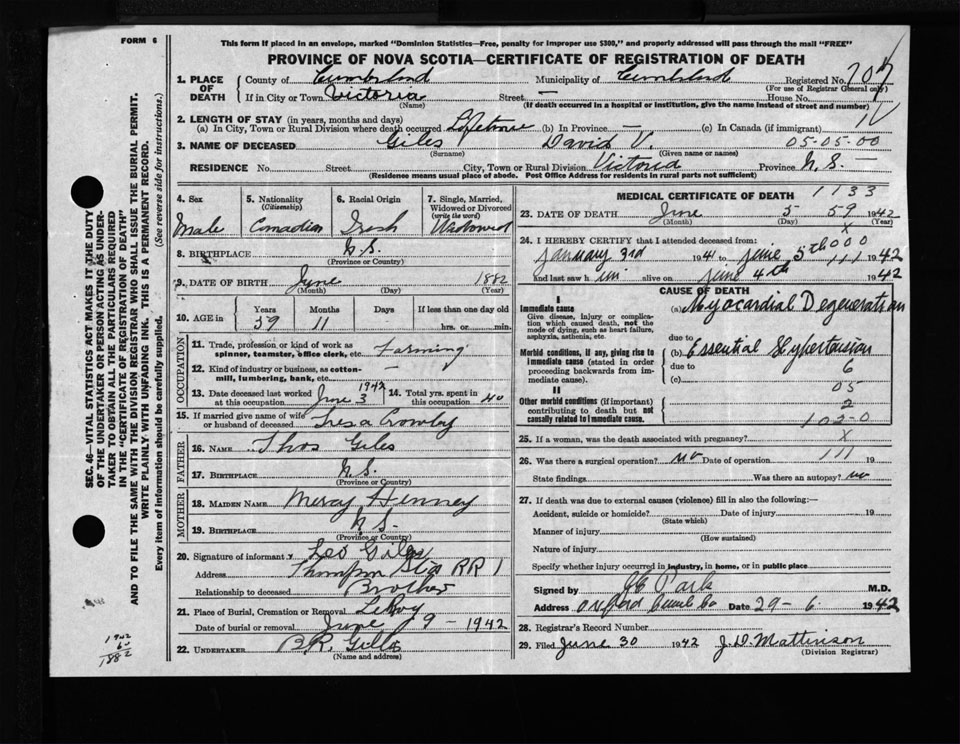 FORM 6
This form if placed in an envelope, marked "Dominion Statistics—Free, penalty for improper use $300," and properly addressed will pass through the mail "FREE"
PROVINCE OF NOVA SCOTIA—CERTIFICATE OF REGISTRATION OF DEATH
1. PLACE OF DEATH County of Cumberland Municipality of Cumberland Registered No. 707
(For use of Registrar General only)
If in City or Town Victoria Street — House No.
(Name) (If death occurred in a hospital or institution, give the name instead of street and number)
2. LENGTH OF STAY (in years, months and days)
(a) In City, Town or Rural Division where death occurred Lifetime (b) In Province — (c) In Canada (if immigrant)
3. NAME OF DECEASED Giles David V. 05-05-00
(Surname) (Given name or names)
RESIDENCE No. Street City, Town or Rural Division Victoria Province N.S. —
(Residence means usual place of abode. Post Office Address for residents in rural parts not sufficient)
4. Sex Male
5. Nationality (Citizenship) Canadian
6. Racial Origin Irish
7. Single, Married, Widowed or Divorced (write the word) Widowed
8. BIRTHPLACE N.S.
(Province or Country)
9. DATE OF BIRTH June 1882
(Month) (Day) (Year)
10. AGE in Years 59 Months 11 Days If less than one day old hrs. or min.
OCCUPATION
11. Trade, profession or kind of work as spinner, teamster, office clerk, etc. Farming
12. Kind of industry or business, as cotton-mill, lumbering, bank, etc. —
13. Date deceased last worked at this occupation June 3 1942
14. Total yrs. spent in this occupation 40
15. If married give name of wife or husband of deceased Tresa Crowley
FATHER
16. NAME Thos Giles
17. BIRTHPLACE N.S.
(Province or Country)
MOTHER
18. MAIDEN NAME Mercy Henney
19. BIRTHPLACE N.S.
(Province or Country)
20. Signature of informant Leo Giles
Address Thompson Sta RR 1
Relationship to deceased Brother
21. Place of Burial, Cremation or Removal
Date of burial or removal June 9 - 1942
22. UNDERTAKER B.R. Giles
(Name and address)
MEDICAL CERTIFICATE OF DEATH
1133
23. DATE OF DEATH June 5 59 1942
(Month) (Day) (Year)
x
24. I HEREBY CERTIFY that I attended deceased from: 000
January 3rd 1941 to June 5th 111 1942
and last saw him alive on June 4th 1942
CAUSE OF DEATH
I
Immediate cause
Give disease, injury or complication which caused death, not the mode of dying, such as heart failure, asphyxia, asthenia, etc.
(a) Myocardial Degeneration
due to
Morbid conditions, if any, giving rise to immediate cause (stated in order proceeding backwards from immediate cause).
(b) Essential Hypertension
due to 6
(c)
05
II
Other morbid conditions (if important) contributing to death but not causally related to immediate cause.
2
102-0
25. If a woman, was the death associated with pregnancy? X
26. Was there a surgical operation? no Date of operation 111 19
State findings Was there an autopsy? no
27. If death was due to external causes (violence) fill in also the following:—
Accident, suicide or homicide? Date of injury 19
(State which)
Manner of injury
(How sustained)
Nature of injury
Specify whether injury occurred in industry, in home, or in public place
Signed by Park M.D.
Address Oxford Cumb Co Date 29-6. 1942
28. Registrar's Record Number
29. Filed June 30 1942 J.D. Mattinson
(Division Registrar)
SEC. 46—VITAL STATISTICS ACT MAKES IT THE DUTY
OF THE UNDERTAKER OR PERSON ACTING AS UNDER-
TAKER TO OBTAIN ALL THE PARTICULARS REQUIRED
IN THE "CERTIFICATE OF REGISTRATION OF DEATH"
AND TO FILE THE SAME WITH THE DIVISION REGISTRAR WHO SHALL ISSUE THE BURIAL PERMIT.
WRITE PLAINLY WITH UNFADING INK. THIS IS A PERMANENT RECORD.
Every item of information should be carefully supplied. (See reverse side for instructions.)
1942
60
1882